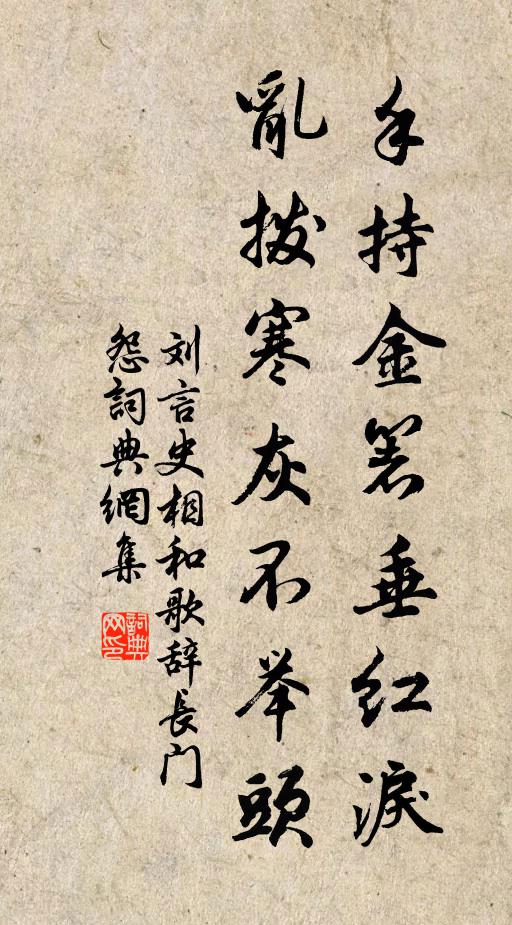 手持金箸垂红淚
亂拨寒灰不举頭
刘言史相和歌辞長门
怨詞典網集
詞典网印